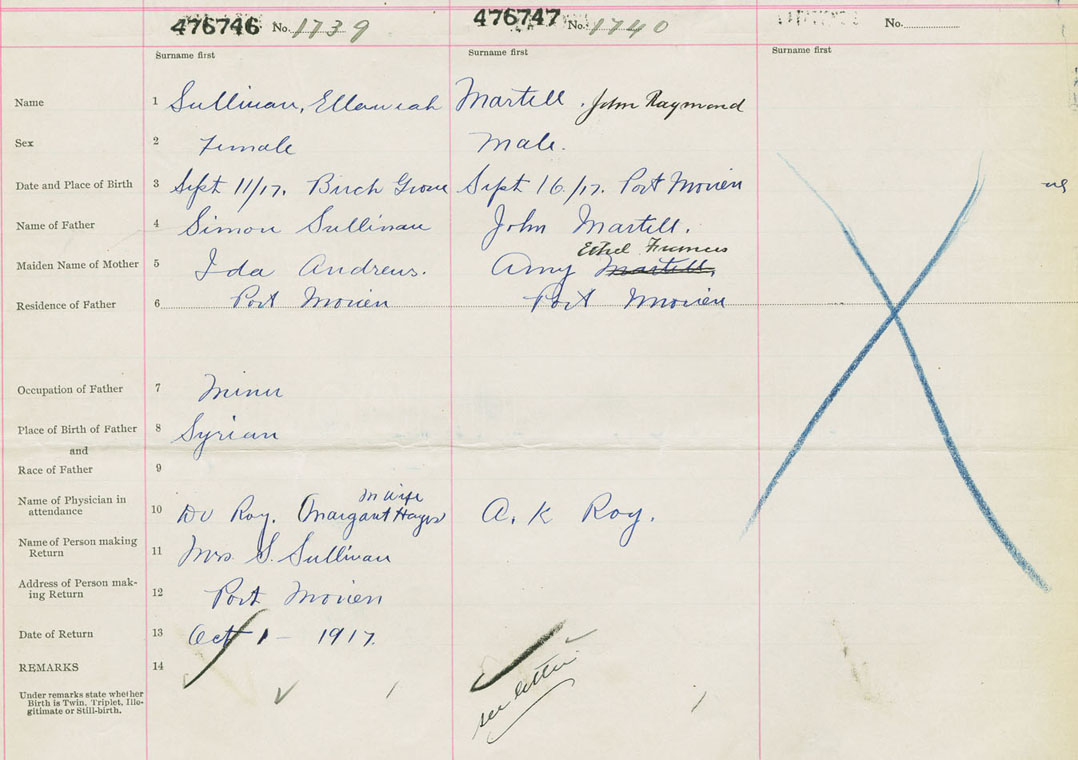 476746 No. 1739
476747 No. 1740
No.
Surname first
Surname first
Surname first
Name 1 Sullivan, Martell. John Raymond
Sex 2 Female Male.
Date and Place of Birth 3 Sept 11/17. Birch Grove Sept 16/17. Port Morien
Name of Father 4 Simon Sullivan John Martell.
Ethel Frances
Maiden Name of Mother 5 Ida Andrews. Amy Martell,
Residence of Father 6 Port Morien Port Morien
Occupation of Father 7 Miner
Place of Birth of Father 8 Syrian
and
Race of Father 9
M Wife
Name of Physician in attendance 10 Dr Roy. Margaret Hayes A. K Roy.
Name of Person making Return 11 Mrs. S. Sullivan
Address of Person making Return 12 Port Morien
Date of Return 13 Oct 1 - 1917.
REMARKS 14
see letter
Under remarks state whether
Birth is Twin, Triplet, Ille-
gitimate or Still-birth.